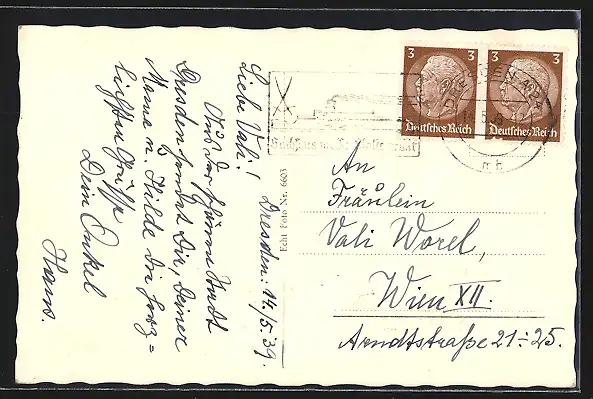 Dresden: 14/5.39.
Liebe Vali!
Aus der schönen Stadt
Dresden sendet Dir, Deiner
Mama u. Hilde die herz=
lichsten Grüsse
Dein Onkel
Hans.
Echt Foto Nr. 6603
3 3
Deutsches Reich Deutsches Reich
An
Fräulein
Vali Worel,
Wien XII.
Arndtstraße 21-25.